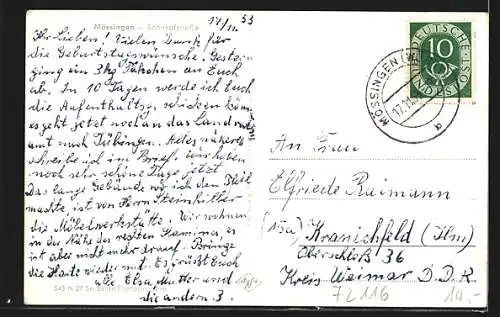 Mössingen - Bahnhofstraße
17/11. 53
Ihr Lieben! Vielen Dank für
die Geburtstagswünsche. Gestern
ging ein 3kg Päckchen an Euch
ab. In 10 Tagen werde ich Euch
die Aufenthaltsg. schicken können
es geht jetzt noch an das Landrats
amt nach Tübingen. Alles nähere
schreibe ich im Brief. Wir haben
noch sehr schöne Tage jetzt
Das lange Gebäude wo ich den Pfeil
machte, ist von Herrn Steinhilber
die Möbelwerkstätte. Wir wohnen
in der Nähe des rechten Kamins, es
ist aber nicht mehr drauf. Bringe
die Karte wieder mit. Es grüßt Euch
alle Elsa, Mutter und
die andern 3.
DEUTSCHE POST
10
BUNDESPOST
MÖSSINGEN
17.11.
b
An Frau
Elfriede Raimann
(15a) Kranichfeld (Ilm)
Oberschloß 36
Kreis Weimar D.D.R
72116
10,-